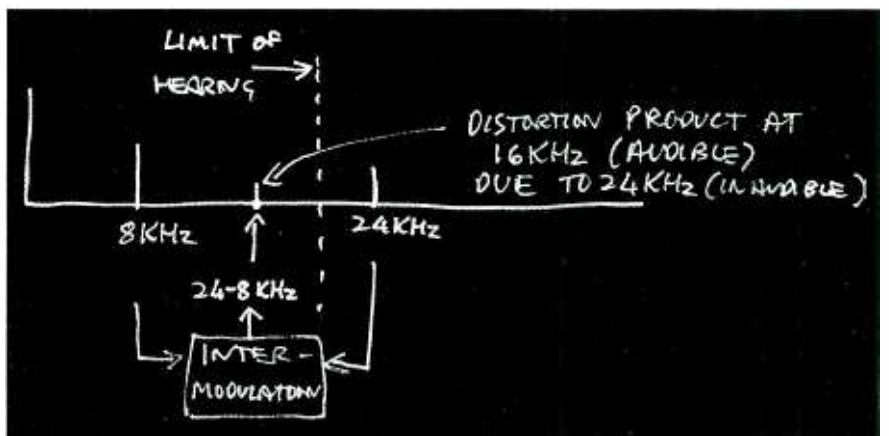 LIMIT OF
HEARING
DISTORTION PRODUCT AT
16KHz (AUDIBLE)
DUE TO 24KHz (INAUDIBLE)
8KHz
24KHz
24-8KHz
INTER-
MODULATION